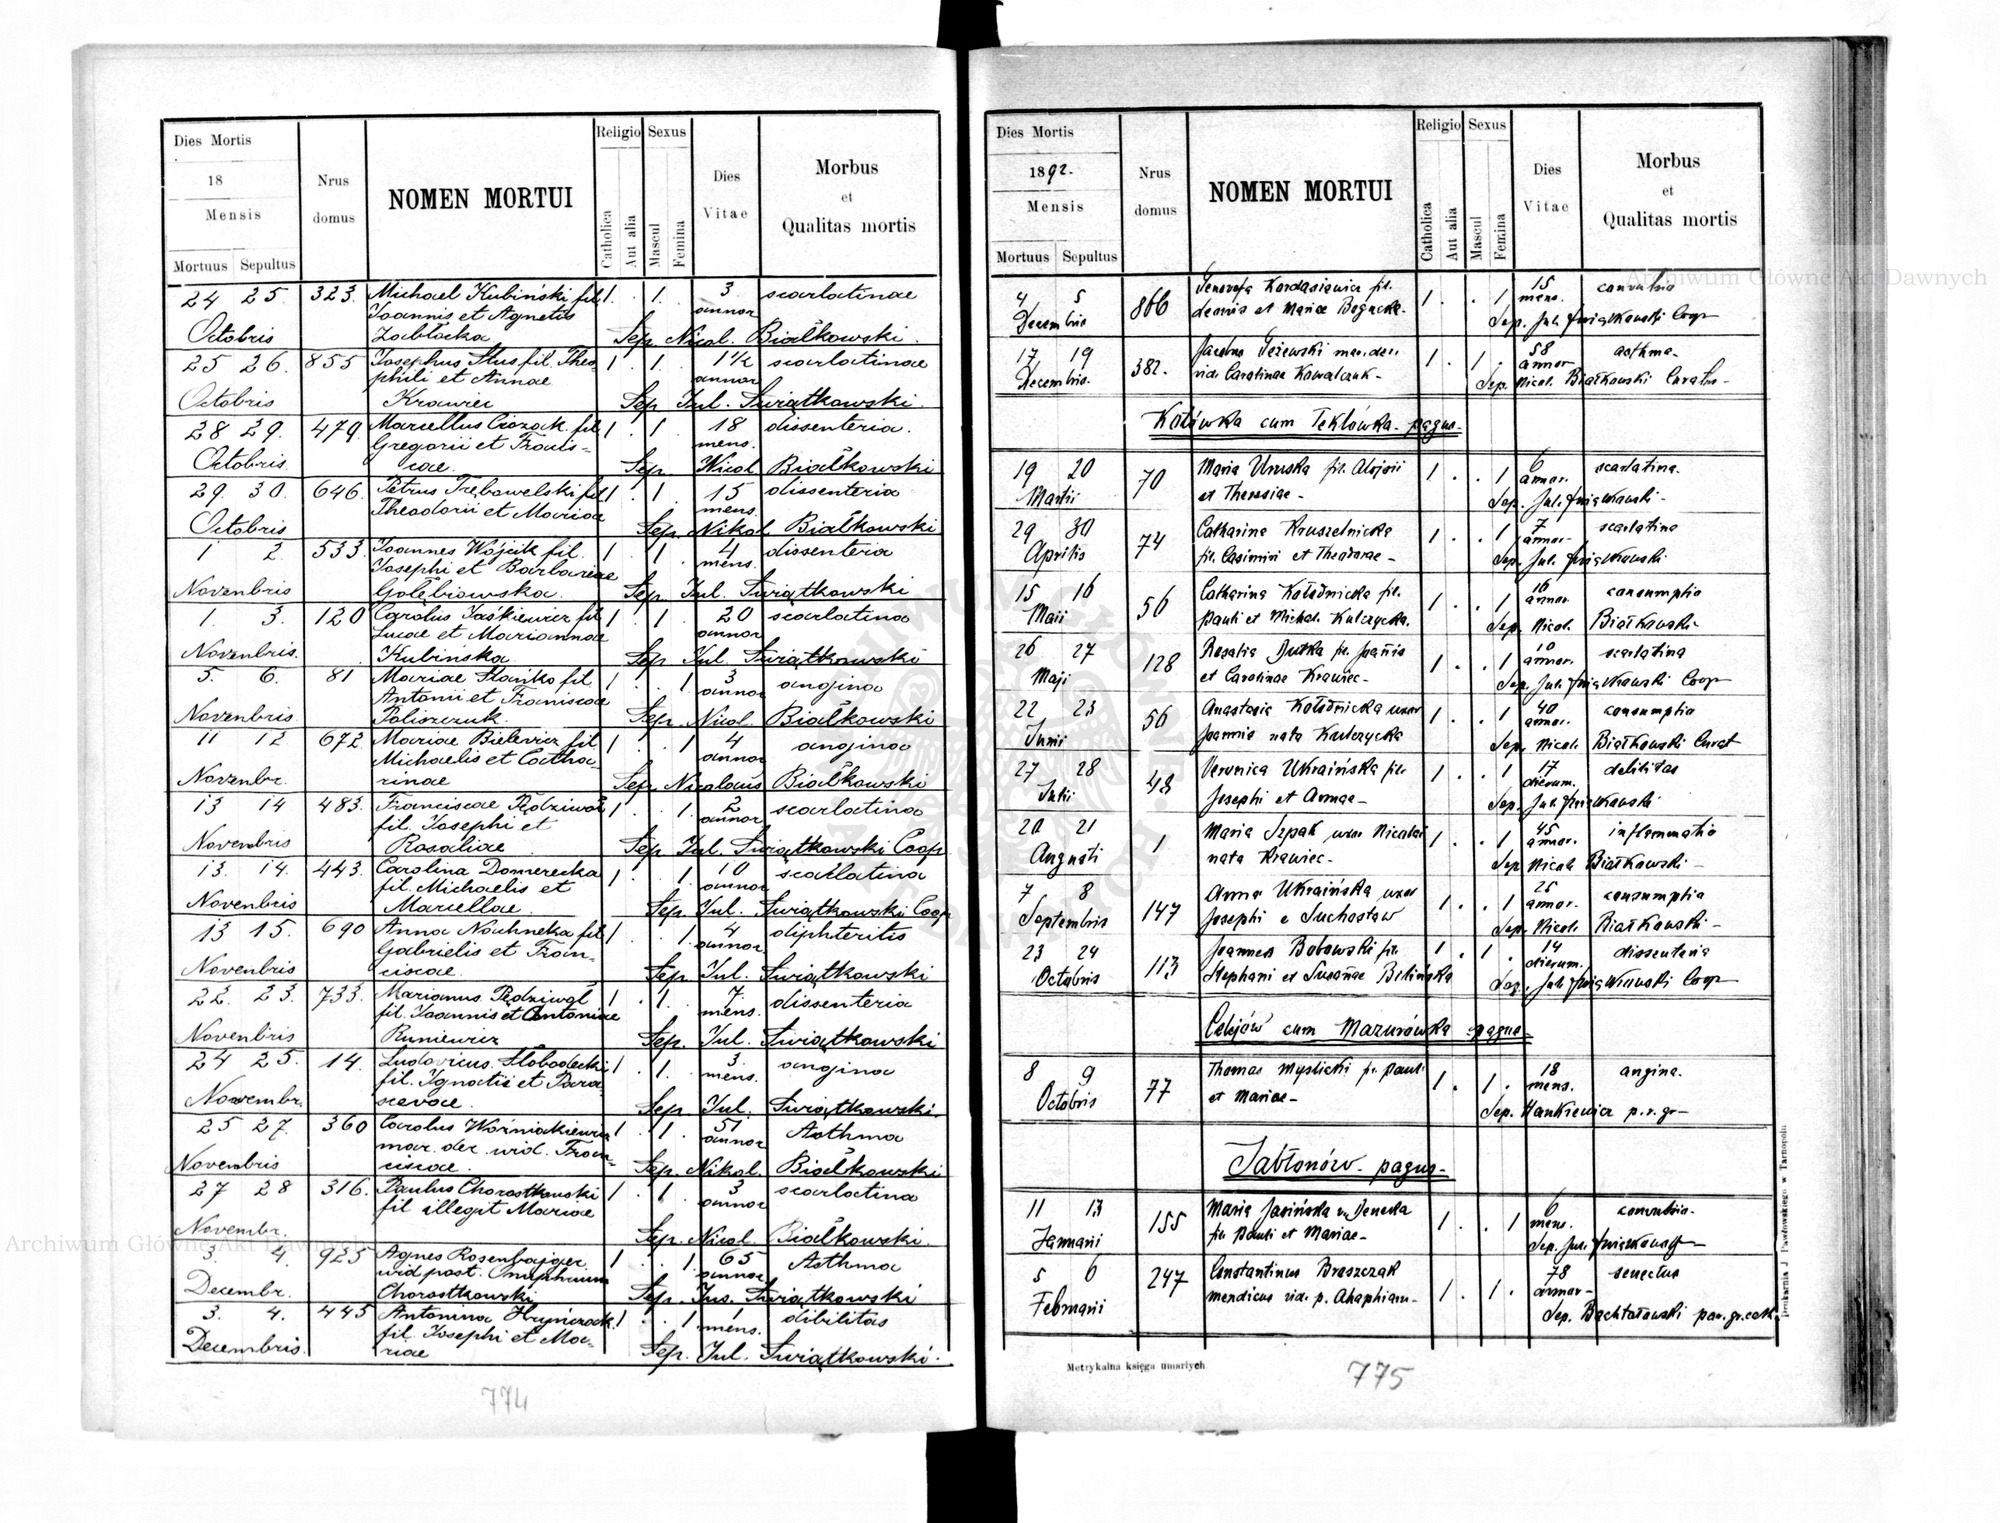 Dies Mortis
18
Mensis
Mortuus Sepultus
Nrus domus
NOMEN MORTUI
Religio
Catholica
Aut alia
Sexus
Mascul
Femina
Dies Vitae
Morbus et Qualitas mortis
24 25. 323. Michael Kubiński fil 1. . 1. . 3 scarlatinae
Joannis et Agnetis annor
Octobris Zabłocka Sep Nicol. Białkowski.
25 26. 855 Josephus Stus fil. Theo- 1 . 1. 1½ scarlatinae
phili et Annae annor
Octobris Krawiec Sep Jul. Swiątkowski.
28 29. 479. Marcellus Ciozak fil 1 . 1 18 dissenteria.
Gregorii et Francis= mens.
Octobris. cae. Sep. Nicol Białkowski
29. 30. 646. Petrus Trębowelski fil 1 . 1 15 dissenteria
Theodorii et Mariae mens.
Octobris Sep. Nikol Białkowski
1 2. 533. Joannes Wójcik fil. 1 . 1 4 dissenteria
Josephi et Barbarae mens.
Novenbris Gołębiowska. Sep. Jul. Swiątkowski
1. 3. 120 Carolus Jaśkiewicz fil 1 . 1 20 scarlatina
Lucae et Mariannae annor
Novenbris. Kubińska. Sep Jul Swiątkowski
5. 6. 81 Mariae Stańko fil 1 . . 1 3 angina
Antonii et Franciscae annor
Novenbris. Poliszczuk. Sep. Nicol. Białkowski
11 12 672. Mariae Bielewicz fil 1 . . 1 4 angina
Michaelis et Catha- annor
Novenbr. rinae Sep. Nicolaus Białkowski
13 14 483. Franciscae Rędziwoł 1 . . 1. 2 scarlatina
fil. Josephi et annor
Novenbris Rosaliae Sep. Jul. Swiątkowski Coop
13. 14. 443. Carolina Domerecka 1 . . 1 10 scarlatina
fil. Michaelis et annor
Novenbris Marcellae Sep. Jul. Swiątkowski Coop
13 15. 690 Anna Nouhneka fil 1 . . 1. 4 diphteritis
Gabrielis et Fran- annor
Novenbris ciscae. Sep. Jul. Swiątkowski
22. 23. 733. Marianus Rędziwoł 1 . 1. 7. dissenteria
fil. Joannis et Antoninae mens.
Novenbris Runiewicz Sep. Jul. Swiątkowski.
24 25. 14. Ludovicus Słobodecki 1 . 1. 3. angina
fil. Ignatii et Para mens.
Novembr. scevae. Sep. Jul. Swiątkowski.
25 27. 360 Carolus Woźniakiewicz 1 . 1. 51 Asthma
mar. der. vid. Fran- annor
Novenbris ciscae. Sep. Nikol. Białkowski
27 28 316. Paulus Chorostkowski 1 . 1. 3 scarlatina
fil illegit Mariae annor
Novembr. Sep. Nicol. Białkowski.
3. 4. 925 Agnes Rosenbajger 1 . . 1 65 Asthma
vid post. Onuphrium annor
Decembr. Chorostkowski Sep. Jus. Swiątkowski
3. 4. 445 Antonina Hryńczak 1 . . 1 1 dibilitas
fil. Josephi et Ma- mens.
Decembris. riae Sep. Jul. Swiątkowski.
774
Dies Mortis
1892.
Mensis
Mortuus Sepultus
Nrus domus
NOMEN MORTUI
Religio
Catholica
Aut alia
Sexus
Mascul
Femina
Dies Vitae
Morbus et Qualitas mortis
4 5 806 Genovefa Kordasiewicz fil. 1 . . 1 15 convulsio
Decembris et Mariae Bogucka. mens. Sep. Jul. Swiątkowski Coop
17 19 382. Jacobus Jeżewski mar. der. 1 . 1 . 58 asthma.
Decembris. vid. Carolinae Kowalczuk - annor Sep. Nicol. Białkowski Curatus
Kotówka cum Teklówka - pagus -
19 20 70 Maria Uruska fil. Alojsii 1 . . 1 6 scarlatina.
Martii et Theresiae - annor. Sep. Jul. Swiątkowski -
29 30 74 Catharina Kruszelnicka 1 . . 1 7 scarlatina
Aprilis fil. Casimiri et Theodorae - annor. Sep. Jul. Swiątkowski
15 16 56 Catharina Kołodnicka fil. 1 . . 1 16 consumptio
Maii Pauli et Michal. Kulczycka. annor. Sep. Nicol. Białkowski -
26 27 128 Rosalia Dutka fil. Joañis 1 . . 1 10 scarlatina
Maji et Carolinae Krawiec - annor. Sep. Jul. Swiątkowski Coop
22 23 56 Anastasia Kołodnicka uxor 1 . . 1 40 consumptio
Junii Joannis nata Kulczycka annor. Sep. Nicol. Białkowski Curat
27 28 48 Veronica Ukraińska fil. 1 . . 1 17 debilitas
Julii Josephi et Annae - dierum. Sep. Jul. Swiątkowski
20 21 1 Maria Szpak uxor Nicolai 1 . . 1 45 inflammatio
Augusti nata Krawiec - annor. Sep Nicol. Białkowski -
7 8 147 Anna Ukraińska uxor 1 . . 1 25 consumptio
Septembris Josephi e Suchostaw annor. Sep. Nicol. Białkowski -
23 24 113 Joannes Bobowski fil. 1 . 1 . 14 dissenteria
Octobris Stephani et Susañae Belińska dierum. Sep. Jul. Swiątkowski Coop
Celejów cum Mazurówka pagus
8 9 77 Thomas Myslicki fil. Pauli 1 . 1 . 18 angina.
Octobris et Mariae - mens. Sep. Hankiewicz p. r. gr -
Jabłonów - pagus -
11 13 155 Maria Jasińska v. Denecka 1 . . 1 6 convulsio.
Januarii fil. Pauli et Mariae - mens. Sep. Jul. Swiątkowski
5 6 247 Constantinus Braszczak 1 . 1 . 78 senectus
Februarii mendicus vid. p. Ahaphiam - annor - Sep. Bachtałowski par. gr. cath.
Metrykalna księga umarłych
Drukarnia J. Pawłowskiego w Tarnopolu
775
Archiwum Główne Akt Dawnych
Archiwum Główne Akt Dawnych
ARCHIWUM GŁÓWNE AKT DAWNYCH